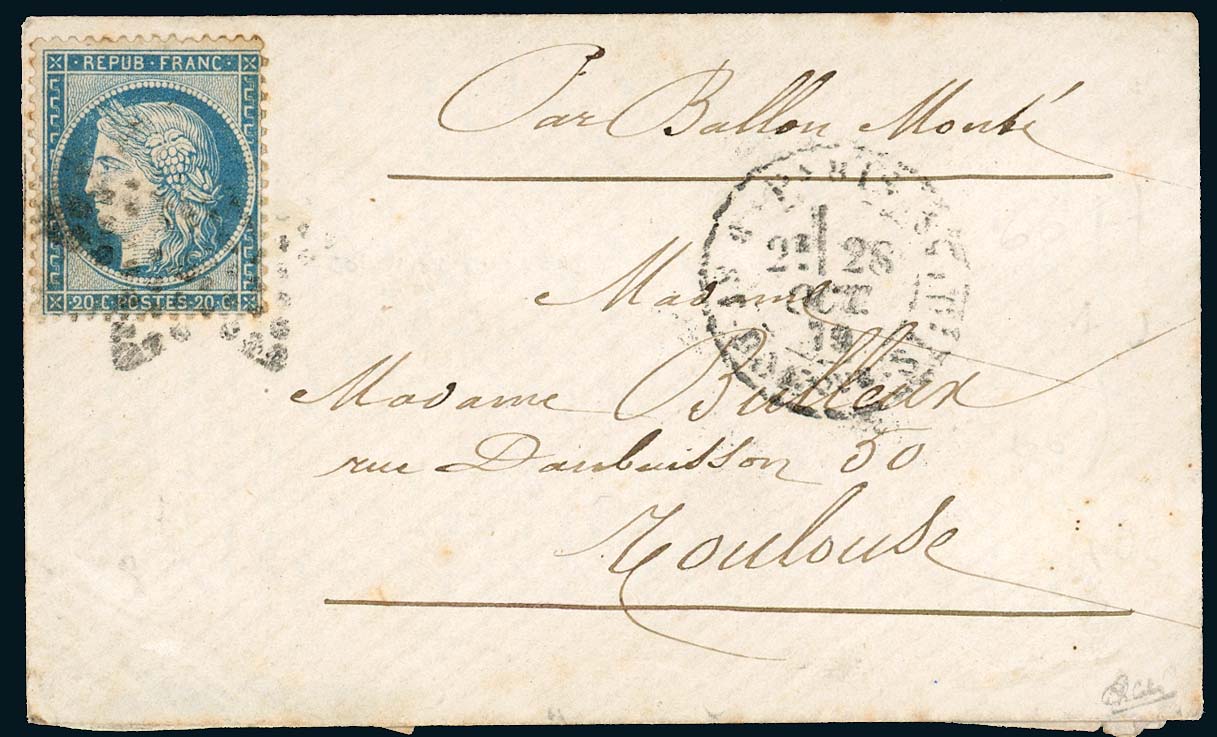 REPUB · FRANC ·
20·C·POSTES·20·C·
Par Ballon Monté
PARIS
28
OCT.
Madame
Madame Bulleux
rue Daubuisson 50
Toulouse